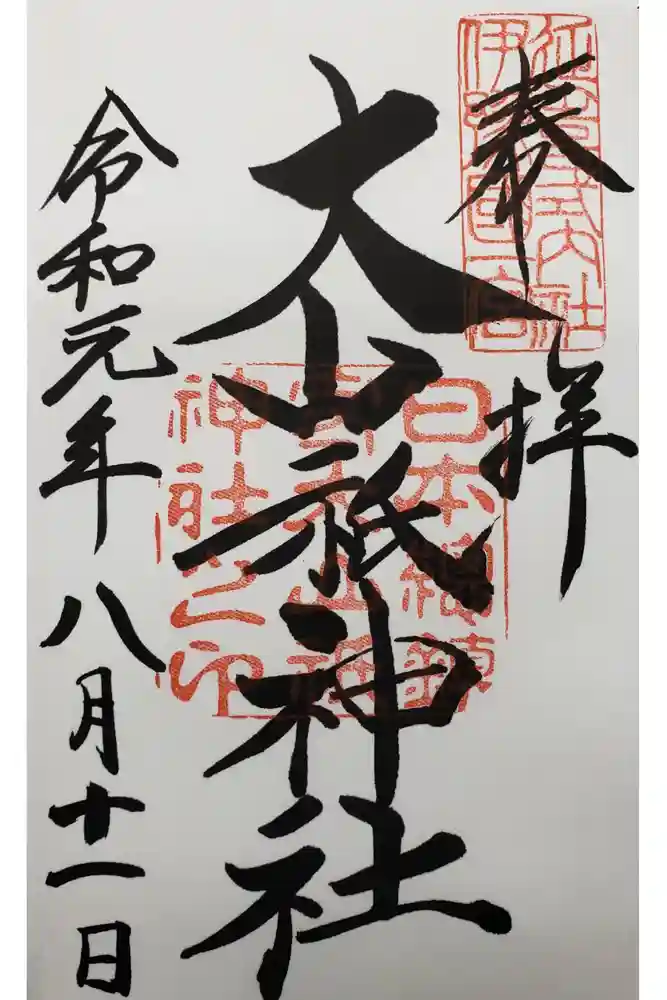 奉拝
延喜式内社
伊豫國一宮
大山祇神社
日本總鎮
守大山祇
神社之印
令和元年八月十一日